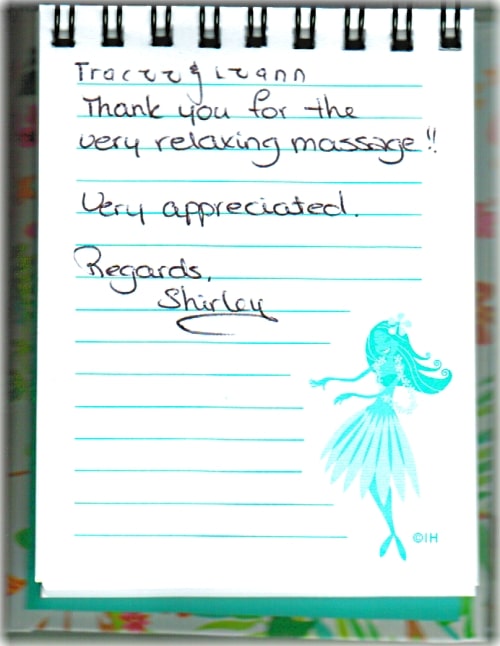 &
Thank you for the
very relaxing massage!!
Very appreciated.
Regards,
Shirley
©IH